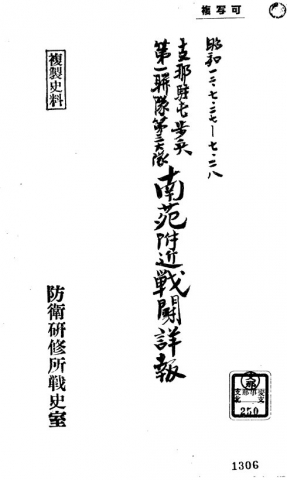 複写可
昭和一二・七・二七ー七・二八
支那駐屯歩兵
第一聯隊第三大隊
南苑附近戦闘詳報
複製史料
防衛研修所戦史室
支那
支那事変
250
1306